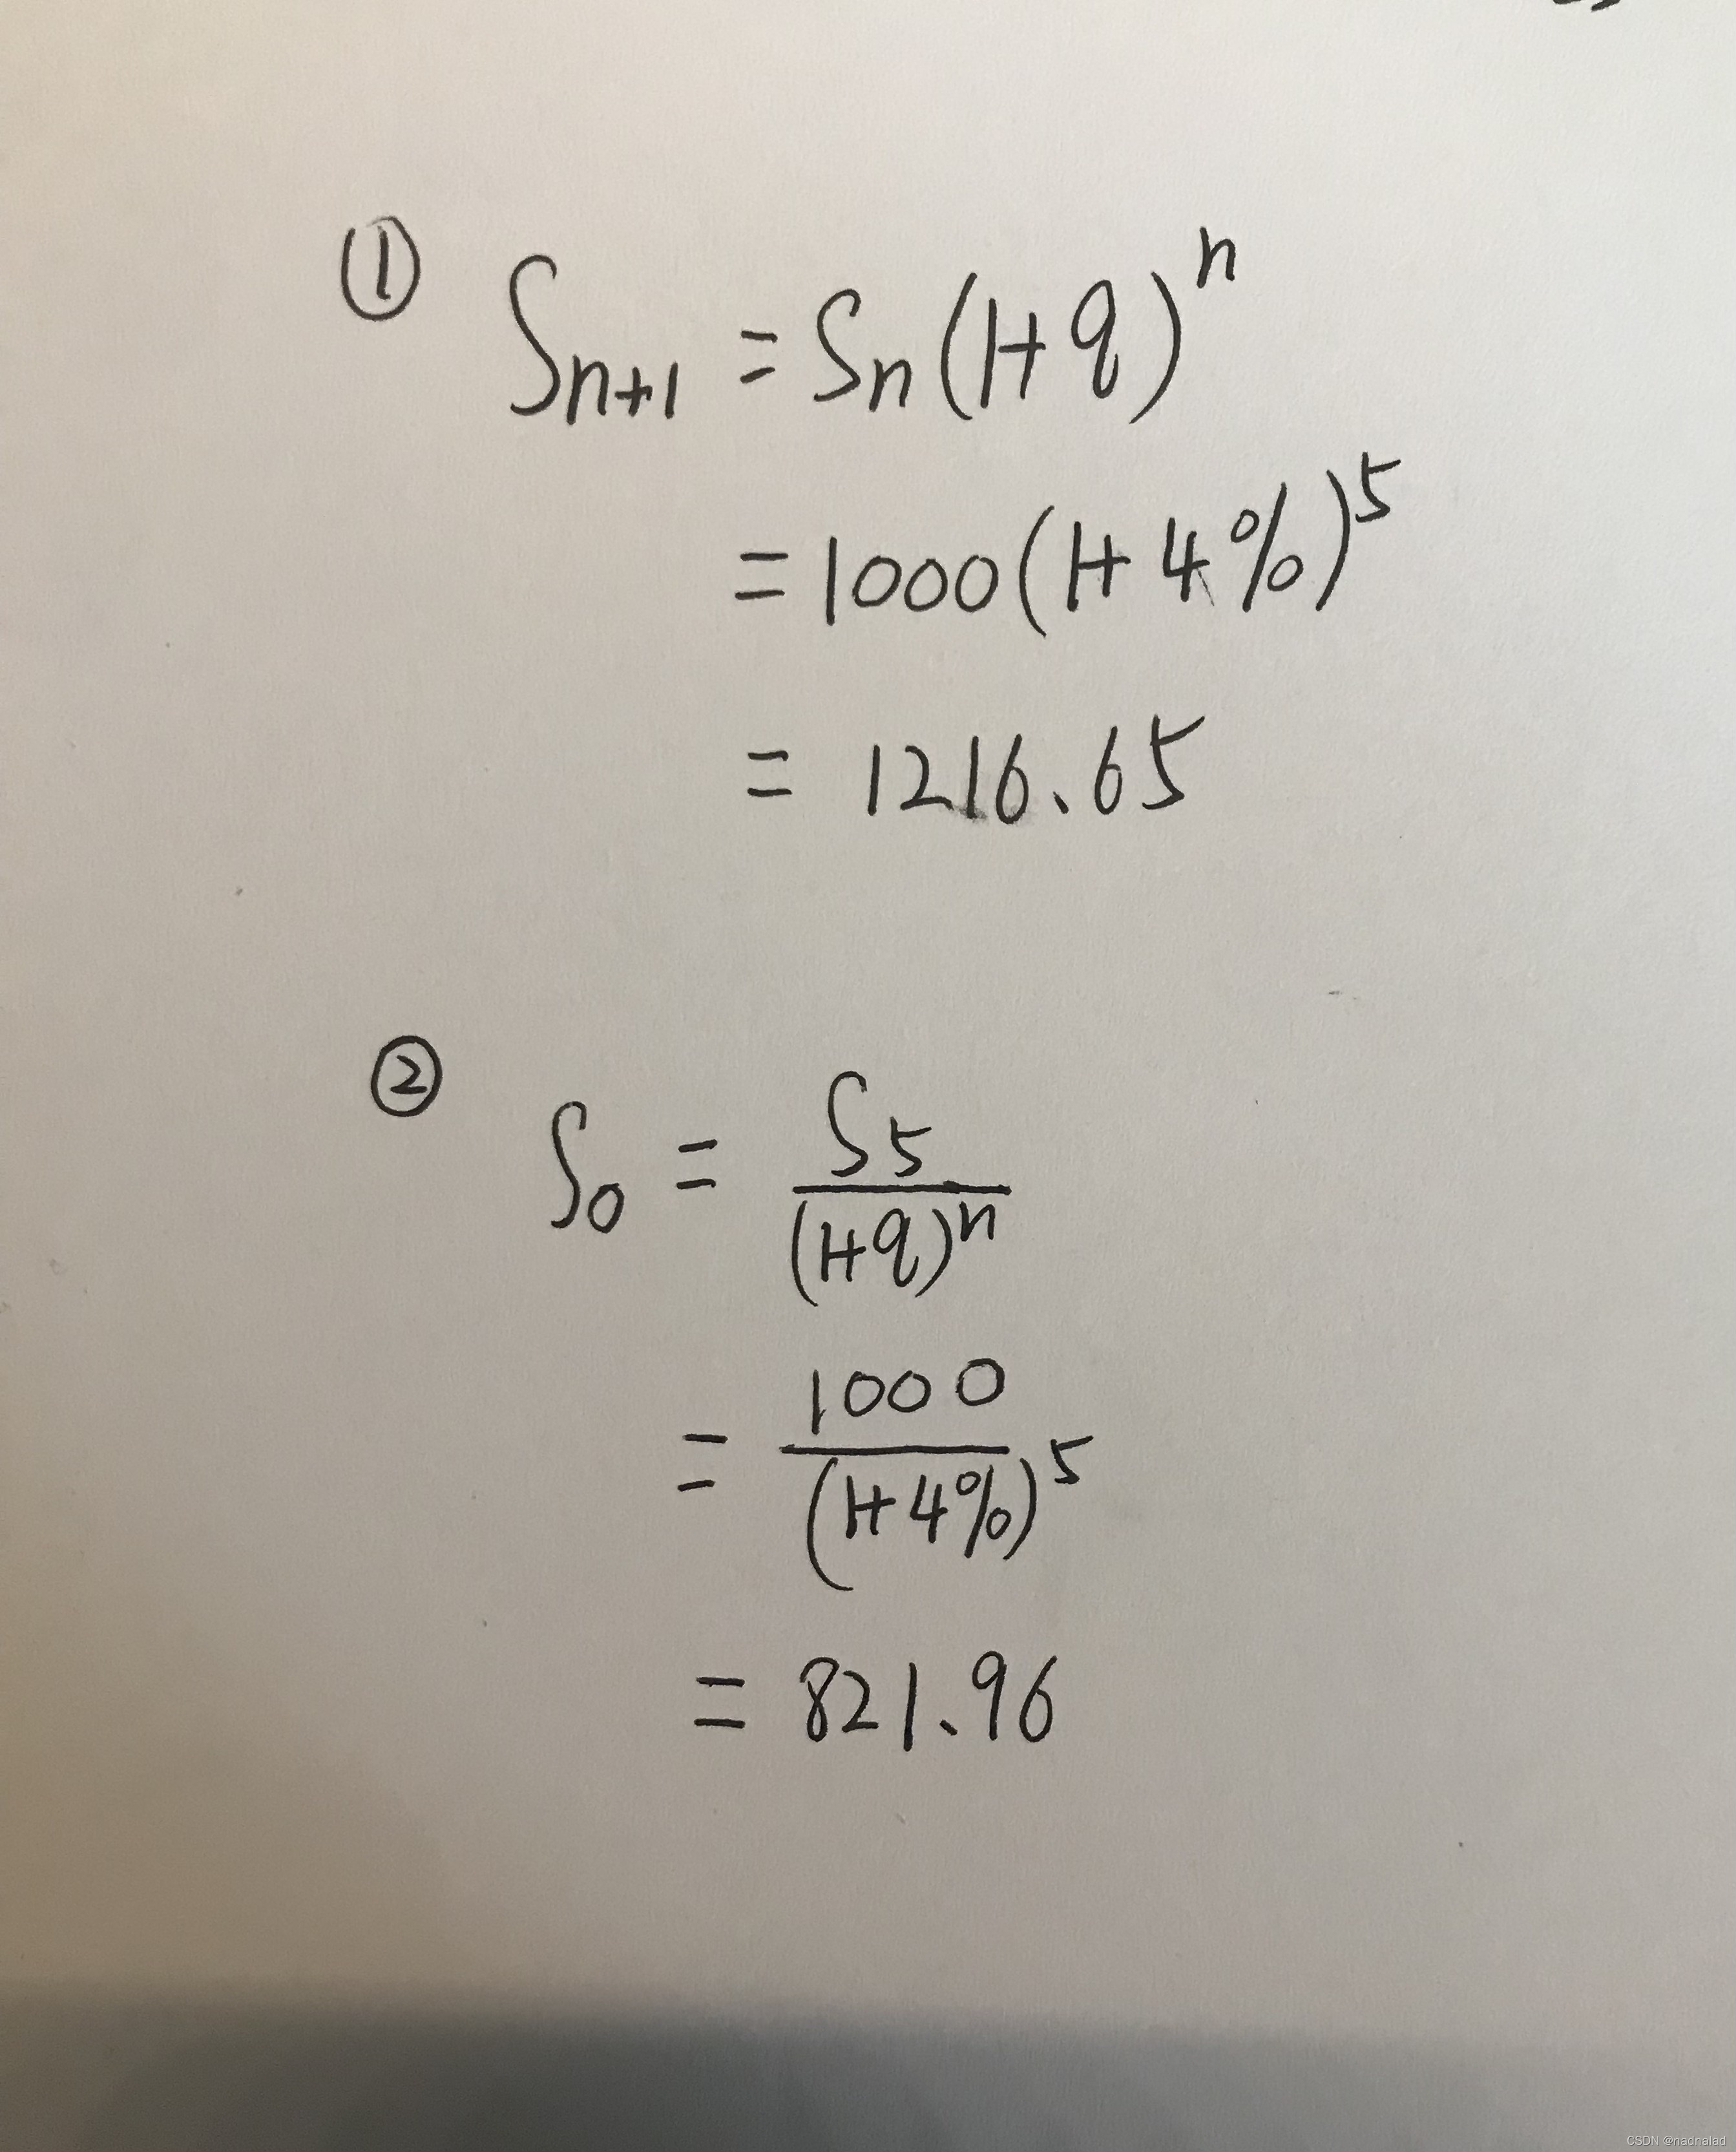 ① Sn+1 = Sn(1+q)^n
= 1000(1+4%)^5
= 1216.65
② S0 = S5/(1+q)^n
= 1000/(1+4%)^5
= 821.96
CSDN @nadnalad